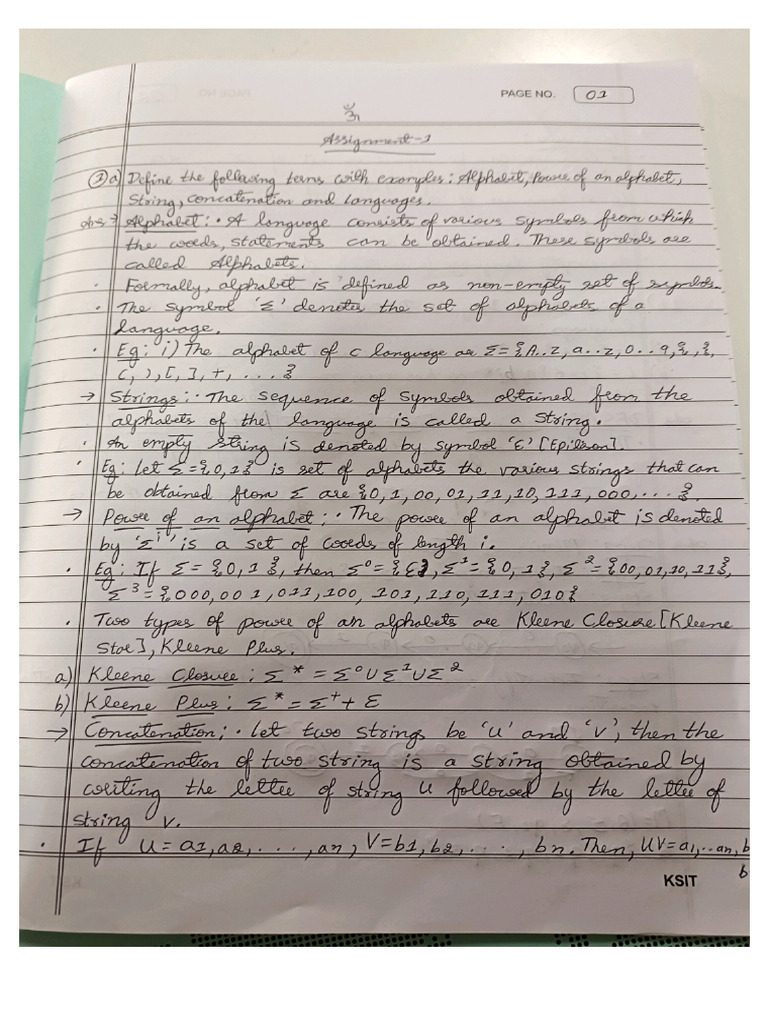 PAGE NO. 01
ॐ
Assignment-1
1 a) Define the following terms with examples: Alphabet, Power of an alphabet,
String, Concatenation and Languages.
Ans → Alphabet: · A language consists of various symbols from which
the words, statements can be obtained. These symbols are
called Alphabets.
· Formally, alphabet is defined as non-empty set of symbols.
· The symbol 'Σ' denotes the set of alphabets of a
language.
· Eg: i) The alphabet of C language are Σ={A..Z, a..z, 0..9, {, },
(, ), [, ], +, ...}
→ Strings: · The sequence of symbols obtained from the
alphabets of the language is called a string.
· An empty string is denoted by symbol 'ε' [Epilson].
· Eg: Let Σ={0,1} is set of alphabets the various strings that can
be obtained from Σ are {0, 1, 00, 01, 11, 10, 111, 000, ....}
→ Power of an alphabet: · The power of an alphabet is denoted
by 'Σⁱ' is a set of words of length i.
· Eg: If Σ={0,1}, then Σ⁰={ε}, Σ¹={0,1}, Σ²={00,01,10,11},
Σ³={000,001,011,100,101,110,111,010}
· Two types of power of an alphabets are Kleene Closure [Kleene
Star], Kleene Plus.
a) Kleene Closure: Σ* = Σ⁰∪Σ¹∪Σ²
b) Kleene Plus: Σ* = Σ⁺ + ε
→ Concatenation: · Let two strings be 'U' and 'V', then the
concatenation of two string is a string obtained by
writing the letter of string U followed by the letter of
string V.
· If U = a1, a2, ...., an, V = b1, b2, ...., bn. Then, UV = a1,..an, b
b
KSIT